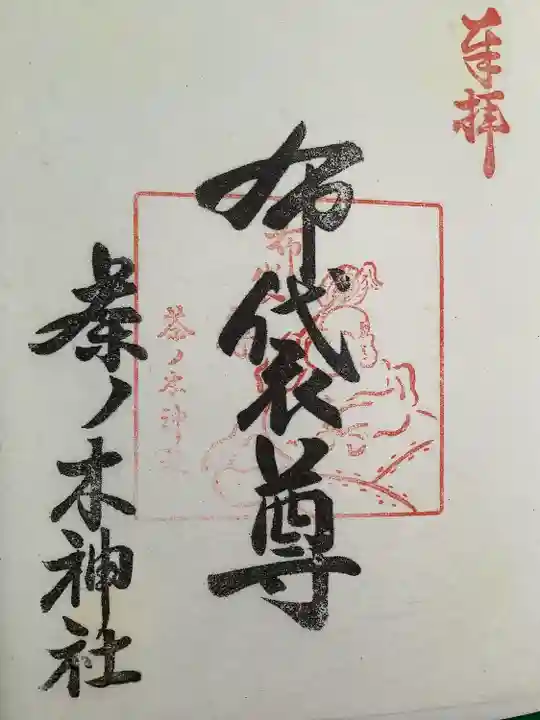 奉拝
布袋尊
茶ノ木神社
布袋
茶ノ木神社